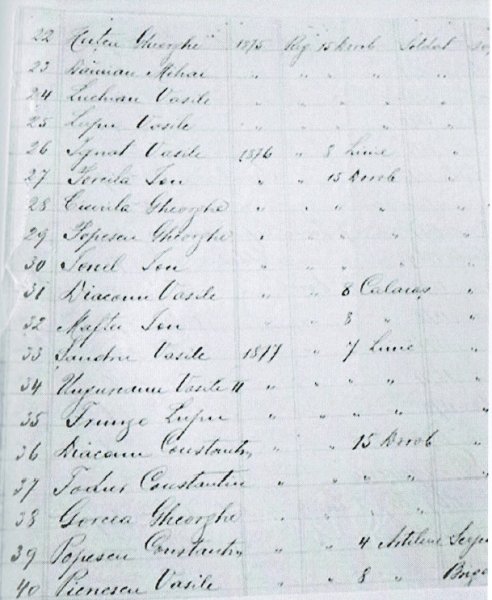 22 Hutu Gheorghe 1875 Reg 15 Dorob Soldat
23 Damian Mihai " " " " "
24 Luchian Vasile " " " " "
25 Lupu Vasile " " " " "
26 Ignat Vasile 1876 " 8 Linie "
27 Ion " " 15 Dorob "
28 Gheorghe " " " " "
29 Popescu Gheorghe " " " " "
30 Ionel Ion " " " " "
31 Diaconu Vasile " " 8 Calaras "
32 Maftei Ion " " 8 " "
33 Sandru Vasile 1877 " 7 Linie "
34 Ungureanu Vasile II " " " " "
35 Frunze Lupu " " " " "
36 Diaconu Constantin " " 15 Dorob "
37 Constantin " " " " "
38 Gorcea Gheorghe " " " " "
39 Popescu Constantin " " 4 Artilerie
40 Vasile " " 8 "